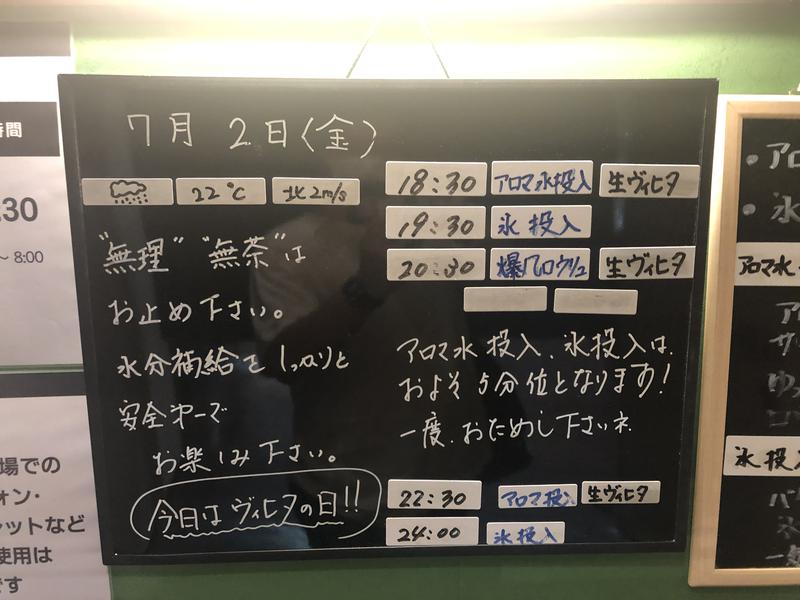 7月 2日(金)
22℃ 北2m/s
"無理" "無茶"は
お止め下さい。
水分補給をしっかりと
安全第一で
お楽しみ下さい。
今日はヴィヒタの日!!
18:30 アロマ水投入 生ヴィヒタ
19:30 氷投入
20:30 爆風ロウリュ 生ヴィヒタ
アロマ水投入、氷投入は、
およそ5分位となります!
一度、おためし下さいネ
22:30 アロマ投入 生ヴィヒタ
24:00 氷投入
時間
:30
~ 8:00
場での
ォン・
レットなど
使用は
です
・アロ
・氷
アロマ水
ア
サ
ゆ
氷投入